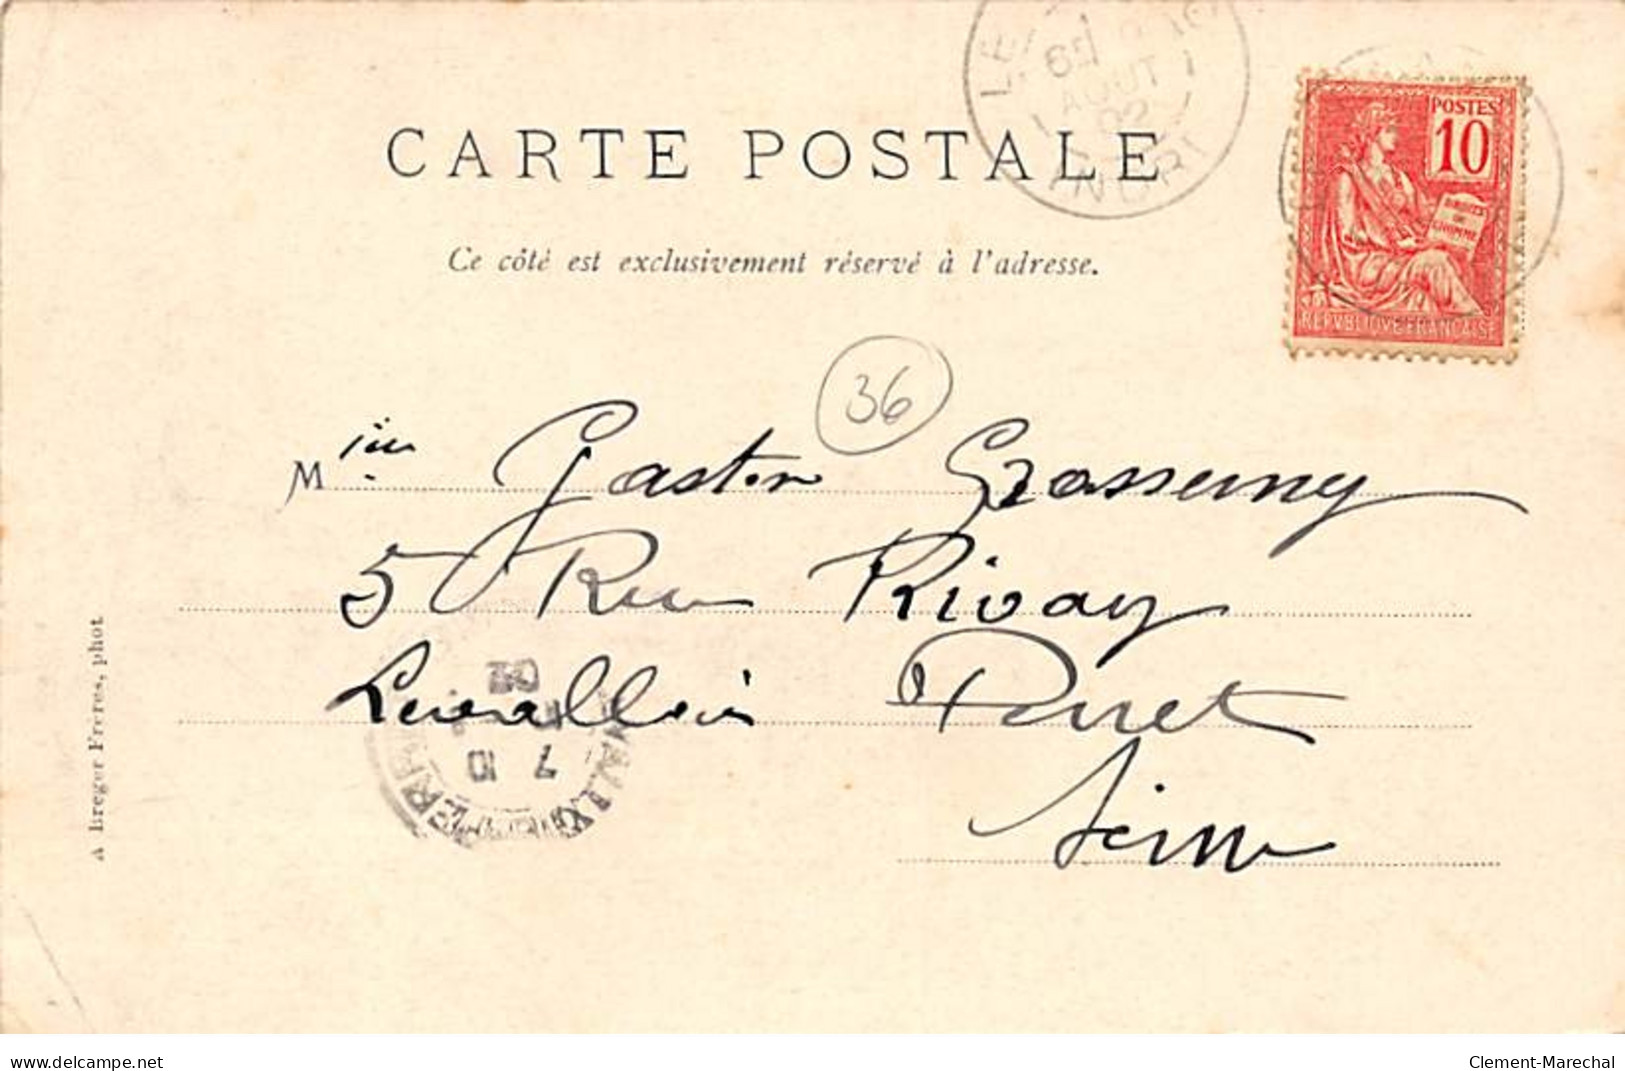 CARTE POSTALE
Ce côté est exclusivement réservé à l'adresse.
LE
AOUT
02
POSTES
10
DROITS
DE
L'HOMME
REPVBLIQVE FRANÇAISE
36
M
Gaston
5 Rue Rivay
Levallois Perret
Seine
7 10
02
PERRET
A Breger Frères, phot
www.delcampe.net
Clement-Marechal